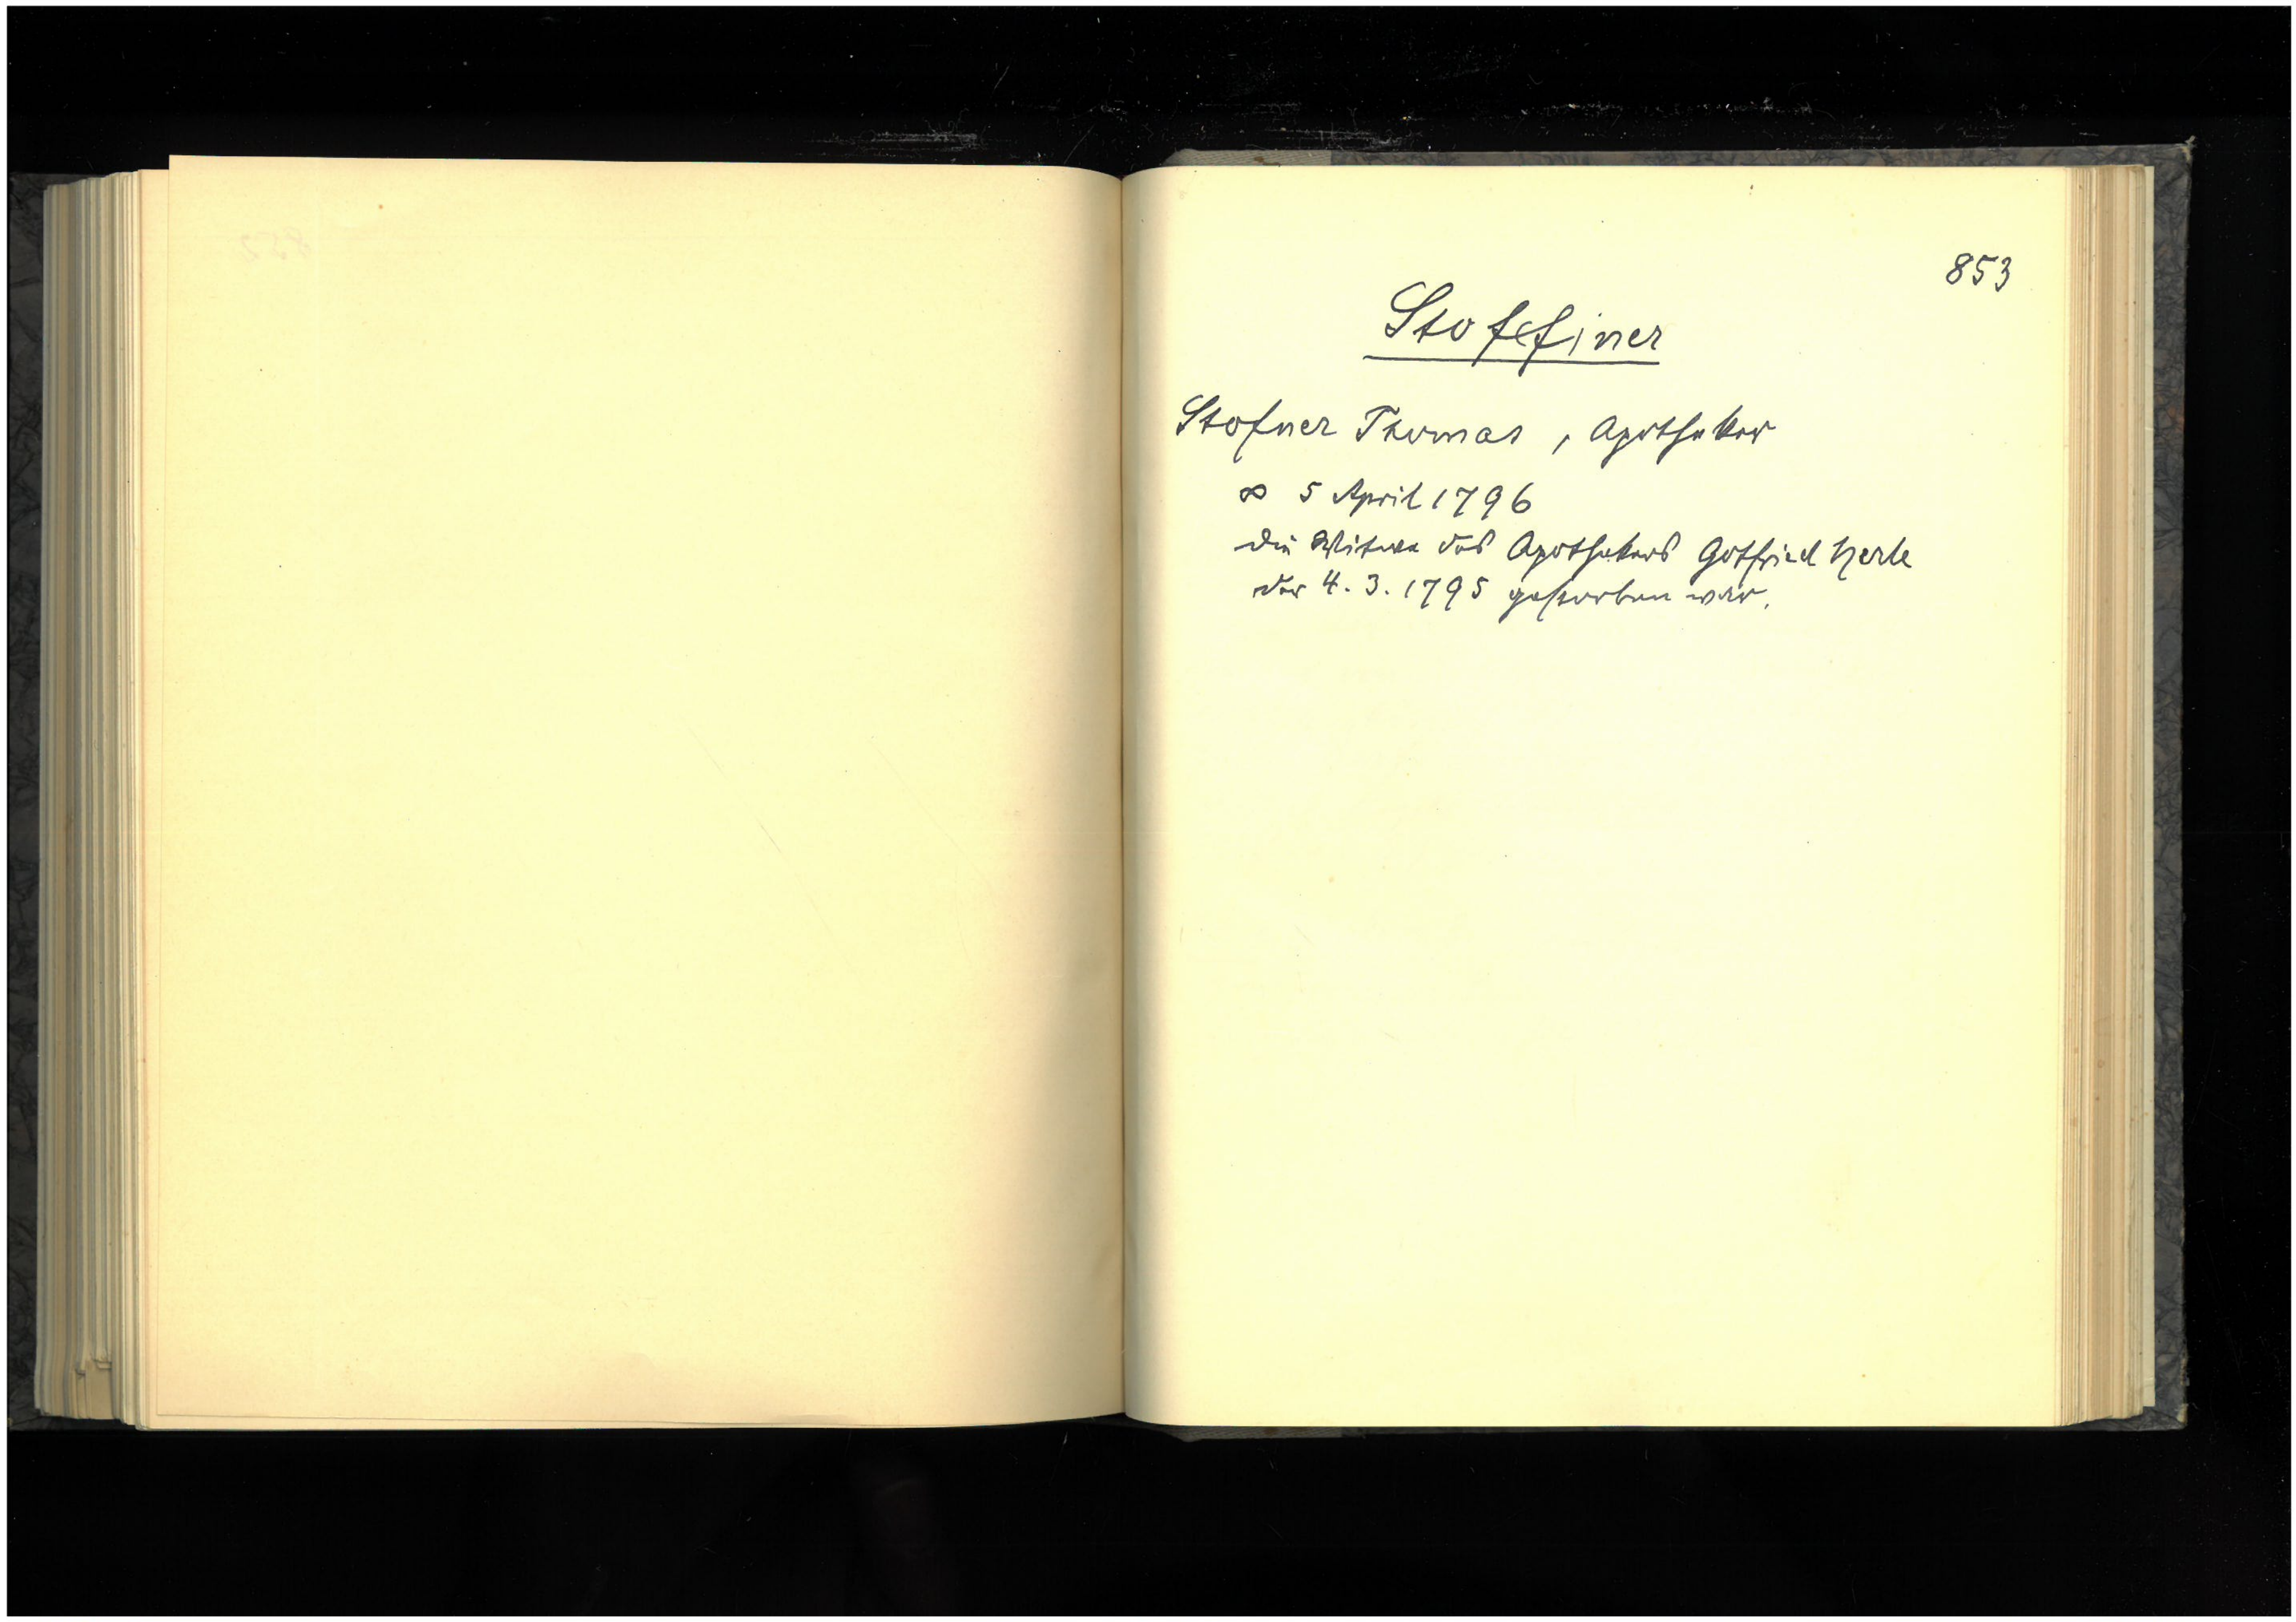 853
Stoffiner
Stofner Thomas, Apotheker
∞ 5 April 1796
die Witwe des Apothekers Gotfried Herle
der 4. 3. 1795 gestorben war.